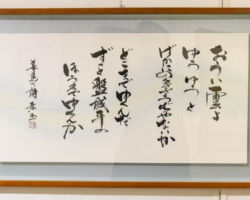 おうい雲よ
ゆうゆうと
ばかにのんきそうぢゃないか
どこまでゆくんだ
ずっと磐城平の
ほうまでゆくんか